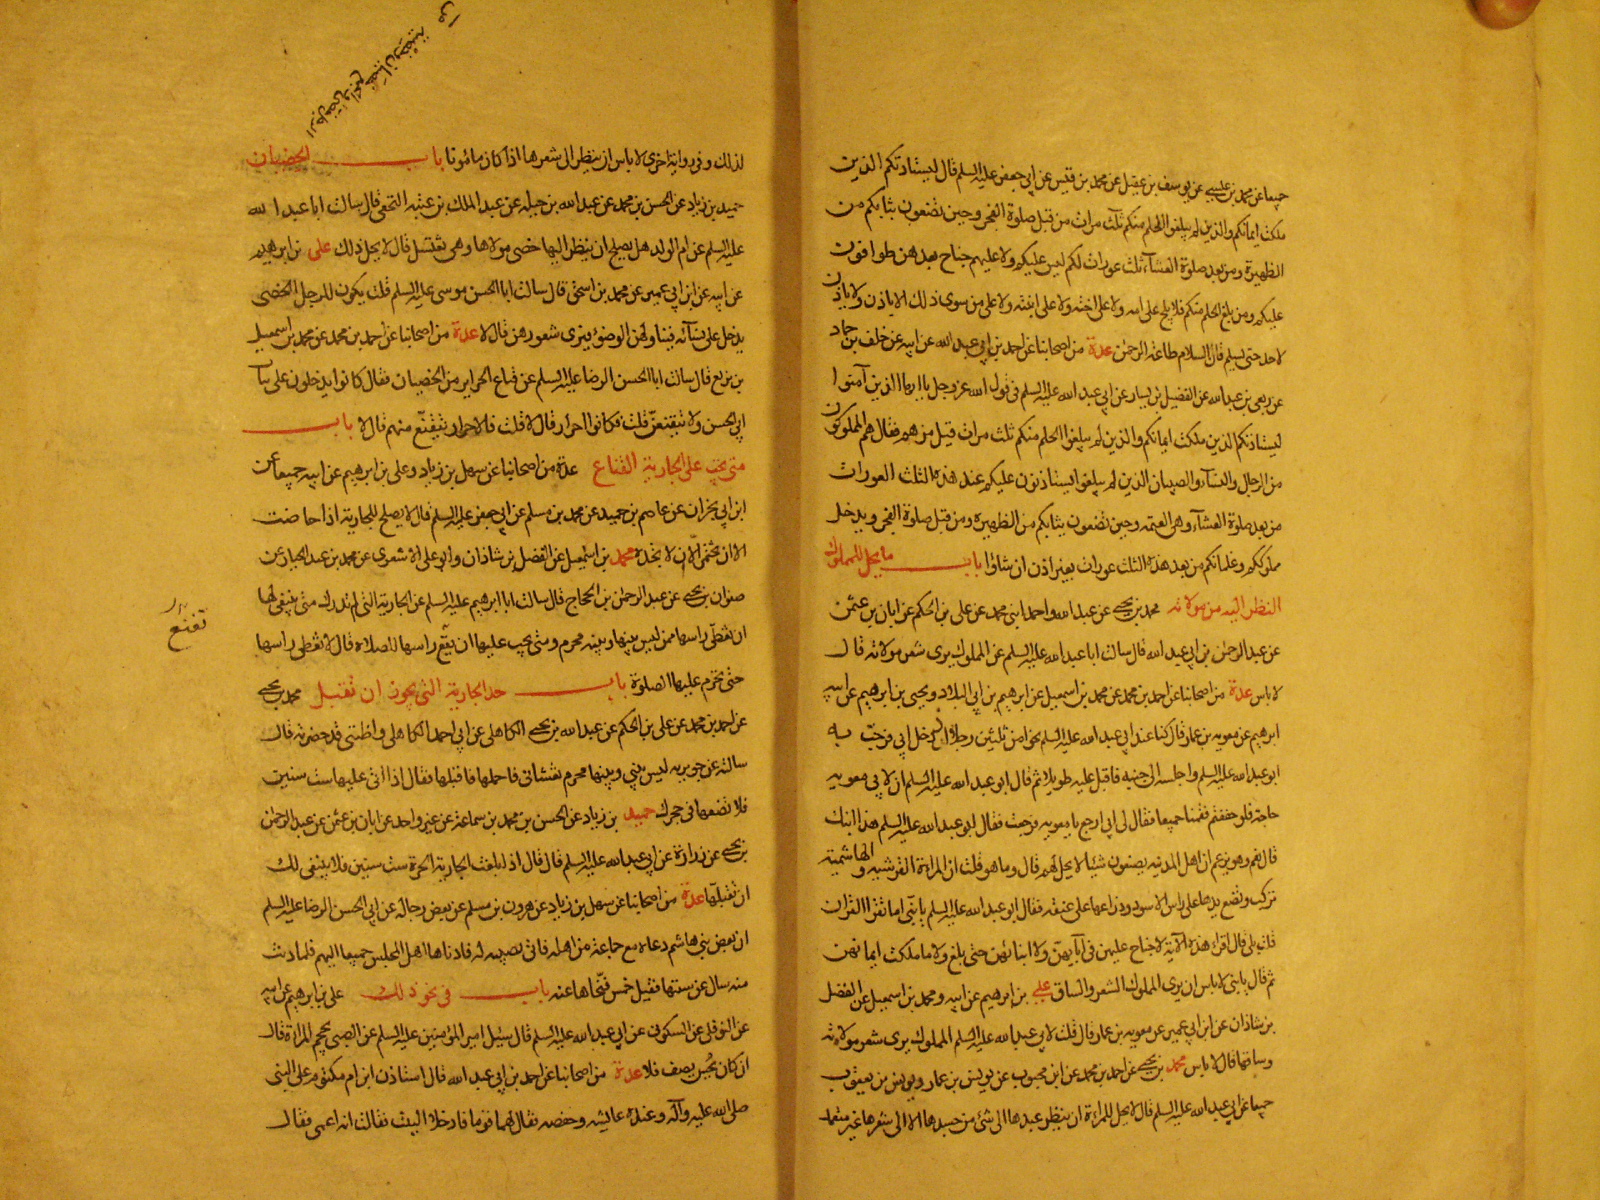 جميعا عن محمد بن عيسى عن يوسف بن عقيل عن محمد بن قيس عن ابي جعفر عليه السلم قال ليستاذنكم الذين
ملكت ايمانكم والذين لم يبلغوا الحلم منكم ثلث مرات من قبل صلوة الفجر وحين تضعون ثيابكم من
الظهيرة ومن بعد صلوة العشاء ثلث عورات لكم ليس عليكم ولا عليهم جناح بعدهن طوافون
عليكم ومن بلغ الحلم منكم فلا يلج على امه ولا على اخته ولا على ابنته ولا على من سوى ذلك الا باذن ولا ياذن
لاحد حتى يسلم فان السلام طاعة الرحمن عدة من اصحابنا عن احمد بن ابي عبد الله عن ابيه عن خلف بن حماد
عن ربعي بن عبد الله عن الفضيل بن يسار عن ابي عبد الله عليه السلم في قول الله عز وجل يا ايها الذين آمنوا
ليستاذنكم الذين ملكت ايمانكم والذين لم يبلغوا الحلم منكم ثلث مرات قيل من هم فقال هم المملوكون
من الرجال والنساء والصبيان الذين لم يبلغوا يستاذنون عليكم عند هذه الثلث العورات
من بعد صلوة العشاء وهي العتمة وحين تضعون ثيابكم من الظهيرة ومن قبل صلوة الفجر ويدخل
مملوككم وغلمانكم من بعد هذه الثلث عورات بغير اذن ان شاؤا باب ما يحل للمملوك
النظر اليه من مولاته محمد بن يحيى عن عبد الله واحمد ابني محمد عن علي بن الحكم عن ابان بن عثمن
عن عبد الرحمن بن ابي عبد الله قال سالت ابا عبد الله عليه السلم عن المملوك يرى شعر مولاته قال
لا باس عدة من اصحابنا عن احمد بن محمد عن محمد بن اسمعيل عن ابرهيم بن ابي البلاد ويحيى بن ابرهيم عن ابيه
ابرهيم عن معوية بن عمار قال كنا عند ابي عبد الله عليه السلم نحوا من ثلثين رجلا اذ دخل ابي فرحب به
ابو عبد الله عليه السلم واجلسه الى جنبه فاقبل عليه طويلا ثم قال ابو عبد الله عليه السلم ان لابي معوية
حاجة فلو خففتم فقمنا جميعا فقال لي ابي ارجع يا معوية فرجعت فقال ابو عبد الله عليه السلم هذا ابنك
قال نعم وهو يزعم ان اهل المدينة يصنعون شيئا لا يحل لهم قال وما هو قلت ان المراءة القرشية والهاشمية
تركب وتضع يدها على راس الاسود وذراعها على عنقه فقال ابو عبد الله عليه السلم يا بني اما تقرا القران
قلت بلى قال اقرا هذه الآية لا جناح عليهن في آبائهن ولا ابنائهن حتى بلغ ولا ما ملكت ايمانهن
ثم قال يا بني لا باس ان يرى المملوك الشعر والساق علي بن ابرهيم عن ابيه ومحمد بن اسمعيل عن الفضل
بن شاذان عن ابن ابي عمير عن معوية بن عمار قال قلت لابي عبد الله عليه السلم المملوك يرى شعر مولاته
وساقها قال لا باس محمد بن يحيى عن احمد بن محمد عن ابن محبوب عن يونس بن عمار ويونس بن يعقوب
جميعا عن ابي عبد الله عليه السلم قال لا يحل للمراءة ان ينظر عبدها الى شئ من جسدها الا الى شعرها غير متعمد
لذلك وفي رواية اخرى لا باس ان ينظر الى شعرها اذا كان مامونا باب الخصيان
حميد بن زياد عن الحسن بن محمد عن عبد الله بن جبلة عن عبد الملك بن عتبة النخعي قال سالت ابا عبد الله
عليه السلم عن ام الولد هل يصلح ان ينظر اليها خصي مولاها وهي تغتسل قال لا يحل ذلك علي بن ابرهيم
عن ابيه عن ابن ابي عمير عن محمد بن اسحق قال سالت ابا الحسن موسى عليه السلم قلت يكون للرجل الخصي
يدخل على نسائه يناولهن الوضوء فيرى شعورهن قال لا عدة من اصحابنا عن احمد بن محمد عن محمد بن اسمعيل
بن بزيع قال سالت ابا الحسن الرضا عليه السلم عن قناع الحراير من الخصيان فقال كانوا يدخلون على بنات
ابي الحسن ولا يتقنعن قلت فكانوا احرار قال لا قلت فالاحرار يتقنع منهم قال لا باب
متى يجب على الجارية القناع عدة من اصحابنا عن سهل بن زياد وعلي بن ابرهيم عن ابيه جميعا عن
ابن ابي نجران عن عاصم بن حميد عن محمد بن مسلم عن ابي جعفر عليه السلم قال لا يصلح للجارية اذا حاضت
الا ان تختمر الا ان لا تجده محمد بن اسمعيل عن الفضل بن شاذان وابو علي الاشعري عن محمد بن عبد الجبار عن
صفوان بن يحيى عن عبد الرحمن بن الحجاج قال سالت ابا ابرهيم عليه السلم عن الجارية التي لم تدرك متى ينبغي لها
ان تغطي راسها ممن ليس بينها وبينه محرم ومتى يجب عليها ان تقنع راسها للصلاة قال لا تغطي راسها
تقنع
حتى تحرم عليها الصلوة باب حد الجارية التي يجوز ان تقبل محمد بن يحيى
عن احمد بن محمد عن علي بن الحكم عن عبد الله بن يحيى الكاهلي عن ابي احمد الكاهلي واظنني قد حضرته قال
سالته عن جويرية ليس بيني وبينها محرم تغشاني فاحملها فاقبلها فقال اذا اتى عليها ست سنين
فلا تضعها في حجرك حميد بن زياد عن الحسن بن محمد بن سماعة عن غير واحد عن ابان بن عثمن عن عبد الرحمن
بن يحيى عن زرارة عن ابي عبد الله عليه السلم قال قال اذا بلغت الجارية الحرة ست سنين فلا ينبغي لك
ان تقبلها عدة من اصحابنا عن سهل بن زياد عن هرون بن مسلم عن بعض رجاله عن ابي الحسن الرضا عليه السلم
ان بعض بني هاشم دعاه مع جماعة من اهله فاتى بصبية له فادناها اهل المجلس جميعا اليهم فلما دنت
منه سال عن سنها فقيل خمس فنحاها عنه باب في نحو ذلك علي بن ابرهيم عن ابيه
عن النوفلي عن السكوني عن ابي عبد الله عليه السلم قال سئل امير المؤمنين عليه السلم عن الصبي يحجم المراة قال
ان كان يحسن يصف فلا عدة من اصحابنا عن احمد بن ابي عبد الله قال استاذن ابن ام مكتوم على النبي
صلى الله عليه وآله وعنده عايشه وحفصه فقال لهما قوما فادخلا البيت فقالتا انه اعمى فقال